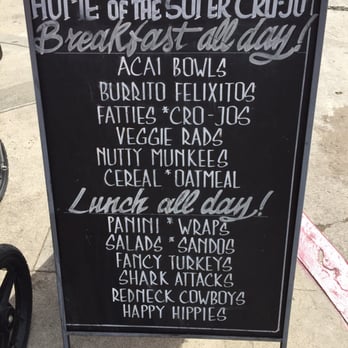 HOME OF THE SUPER CRO-JO!
Breakfast all day!
ACAI BOWLS
BURRITO FELIXITOS
FATTIES * CRO-JOS
VEGGIE RADS
NUTTY MUNKEES
CEREAL * OATMEAL
Lunch all day!
PANINI * WRAPS
SALADS * SANDOS
FANCY TURKEYS
SHARK ATTACKS
REDNECK COWBOYS
HAPPY HIPPIES